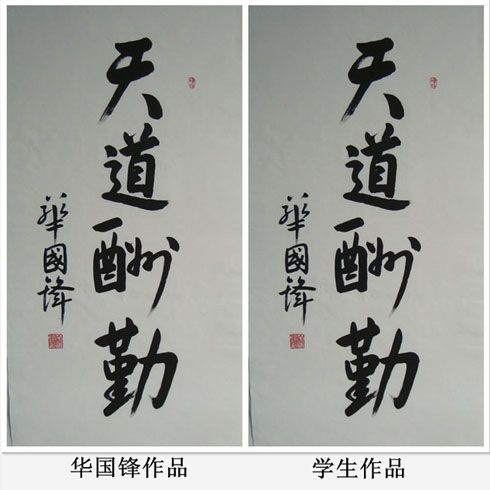 天道酬勤
華國锋
天道酬勤
華國锋
华国锋作品
学生作品